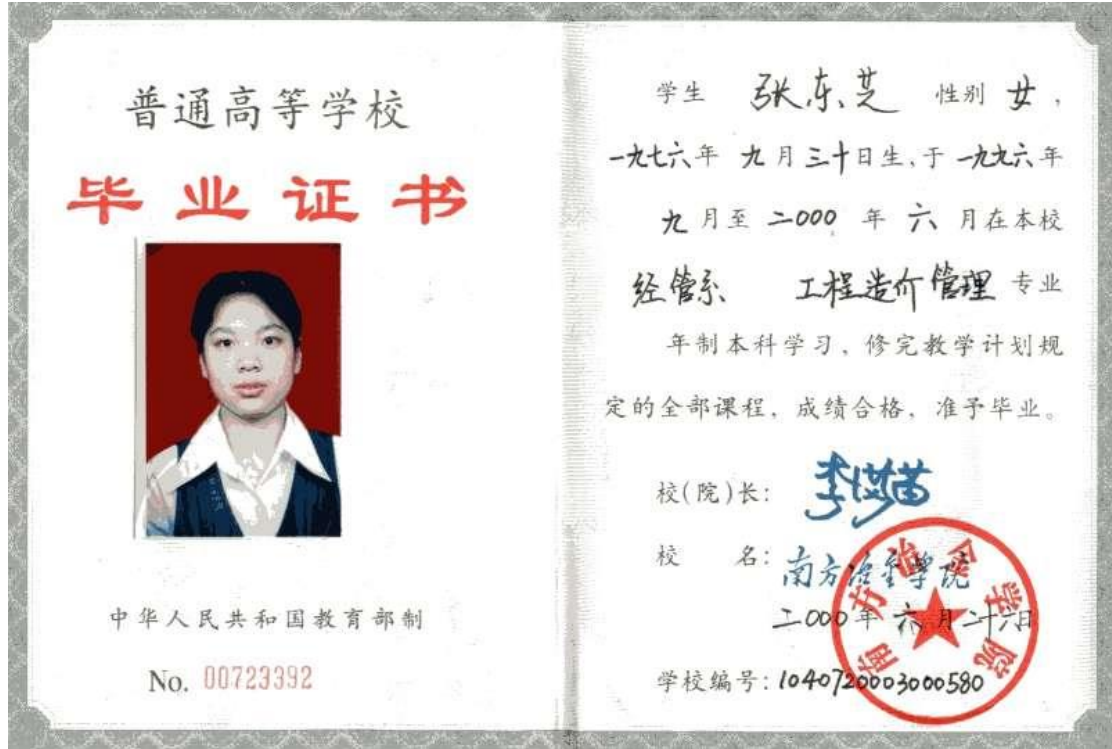 普通高等学校
毕业证书
中华人民共和国教育部制
No. 00723392
学生 张东芝 性别 女,
一九七六年 九月三十日生,于一九九六年
九月至二000年 六月在本校
经管系 工程造价管理专业
年制本科学习,修完教学计划规
定的全部课程,成绩合格,准予毕业。
校(院)长:
校 名:南方冶金学院
二000年六月二十六日
学校编号:1040720003000580
南方冶金学院